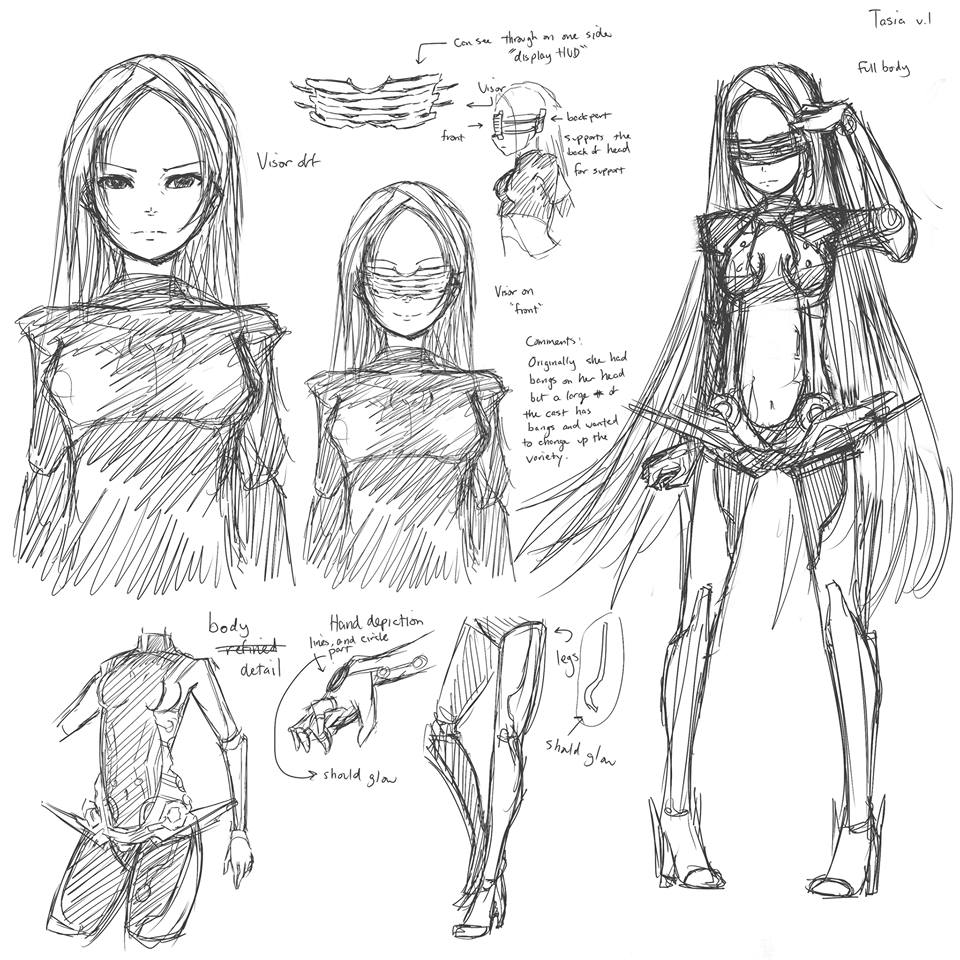 Tasia v.1
Full body
Can see through on one side
"display HUD"
Visor
front
back part
supports the
back of head
for support
Visor off
Visor on
"front"
Comments:
Originally she had
bangs on her head
but a large # of
the cast has
bangs and wanted
to change up the
variety.
body
refined
detail
Hand depiction
lines, and circle
part
should glow
legs
should glow